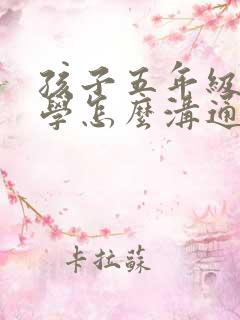 孩子五年級
學怎麼溝通
卡拉蘇